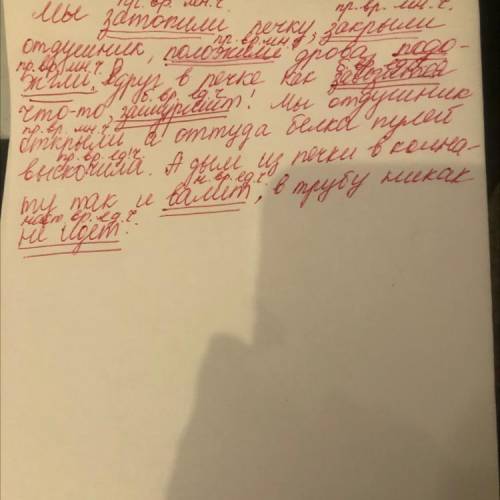 пр. вр. мн. ч. пр. вр. мн. ч.
Мы затопили печку, закрыли
пр. вр. мн. ч.
отдушник, положили дрова, подо-
пр. вр. мн. ч. б. вр. ед. ч.
жгли. Вдруг в печке как
б. вр. ед. ч.
что-то, зашуршит! Мы отдушник
пр. вр. мн. ч.
открыли а оттуда белка пулей
пр. вр. ед. ч.
выскочила. А дым из печки в комна-
н. вр. ед. ч.
ту так и валит, в трубу никак
наст. вр. ед. ч.
не идет!